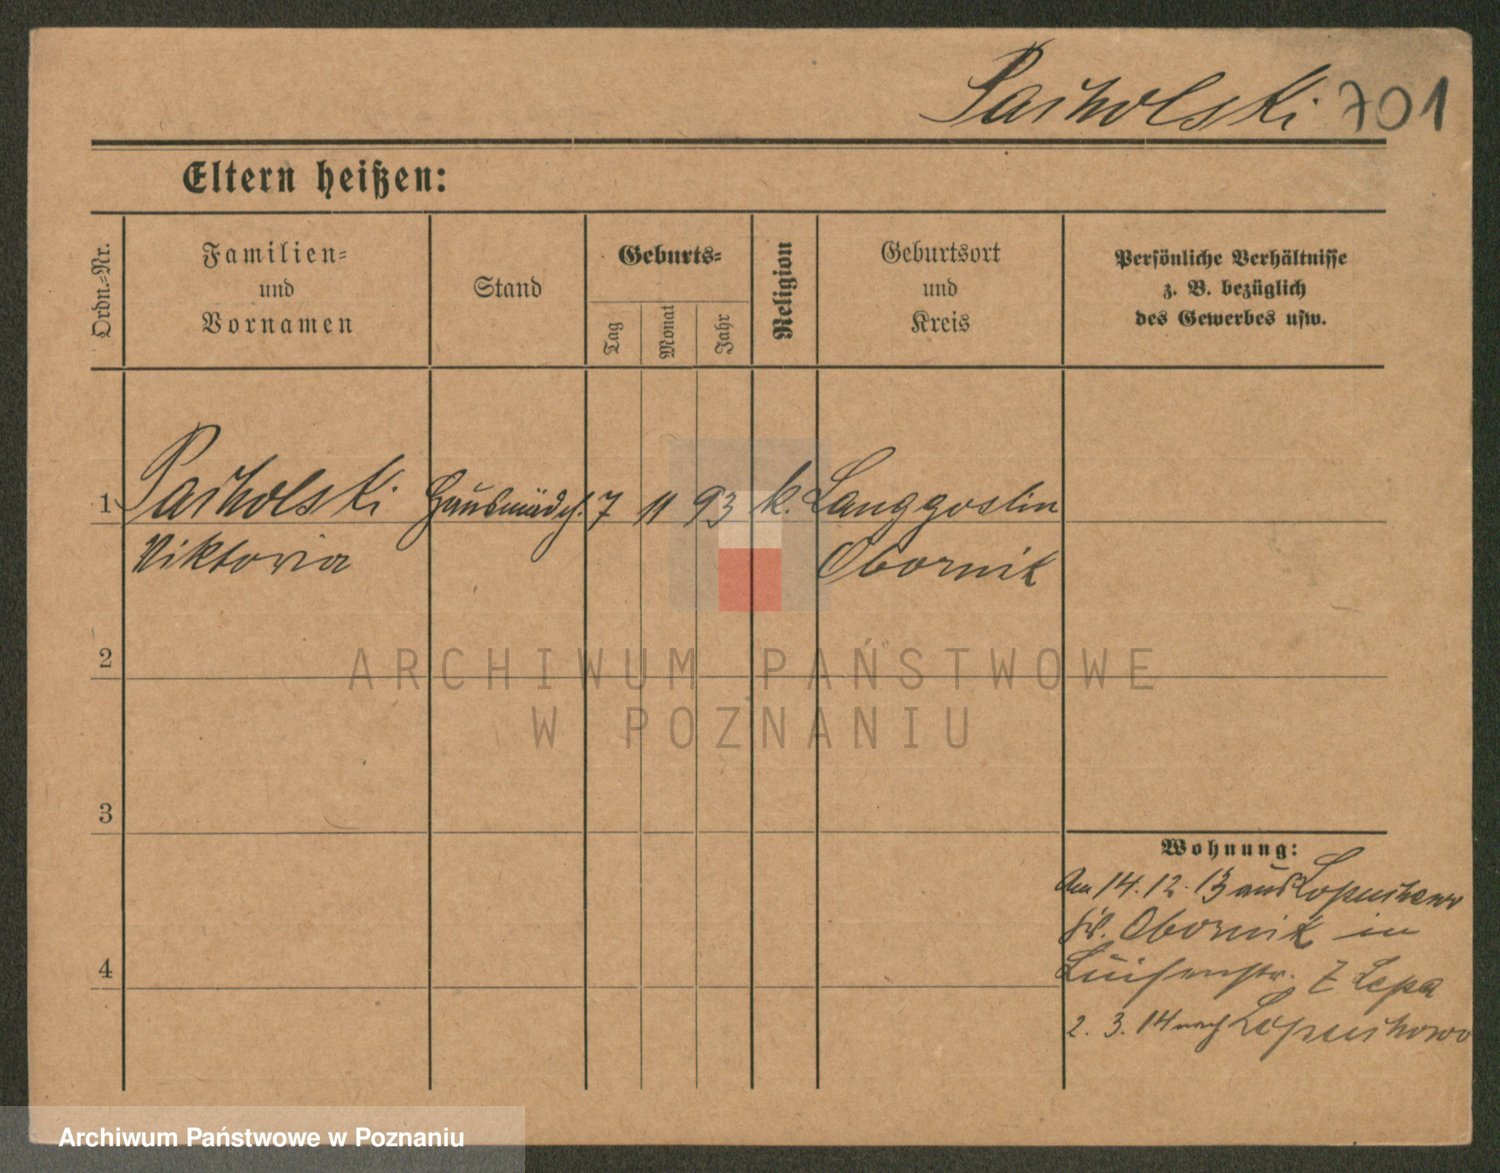 Pacholski 701
Eltern heißen:
Ordn.-Nr.
Familien-
und
Vornamen
Stand
Geburts-
Tag
Monat
Jahr
Religion
Geburtsort
und
Kreis
Persönliche Verhältnisse
z. B. bezüglich
des Gewerbes usw.
1 Pacholski Hausmädch. 7 11 93 k. Langgoslin
Viktoria Obornik
2
3
4
Wohnung:
Am 14. 12. 13 aus Lopuchowo
Kr. Obornik in
Luisenstr. 7 Lepa
2. 3. 14 nach Lopuchowo
ARCHIWUM PAŃSTWOWE
W POZNANIU
Archiwum Państwowe w Poznaniu